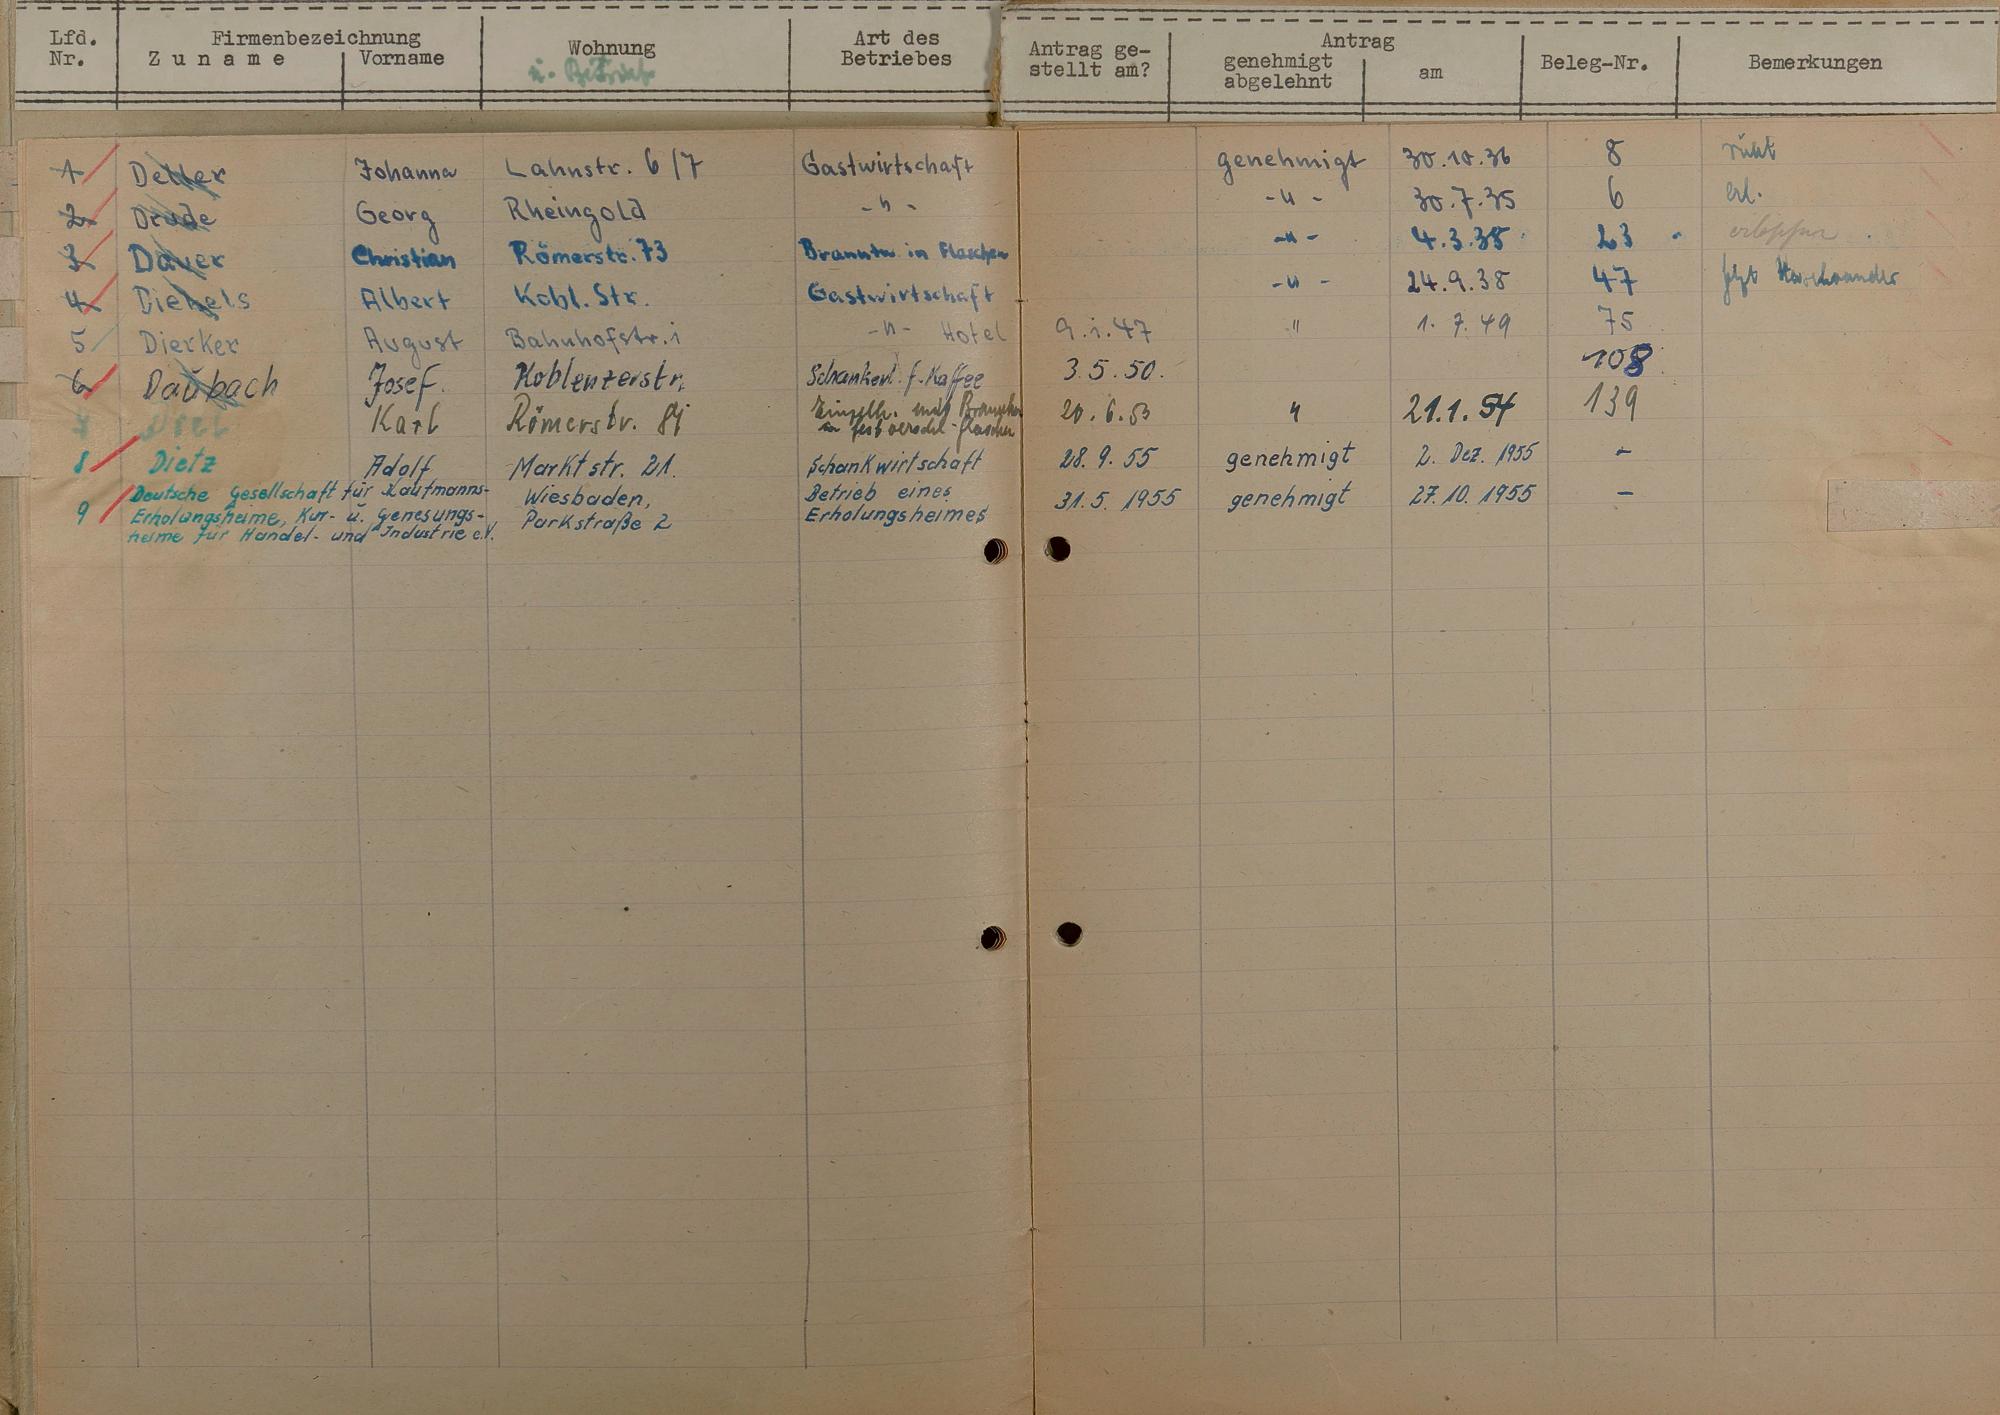 Lfd. Nr. Firmenbezeichnung Zuname Vorname Wohnung u. Betrieb Art des Betriebes Antrag gestellt am? Antrag genehmigt abgelehnt am Beleg-Nr. Bemerkungen
1 Johanna Lahnstr. 6/7 Gastwirtschaft genehmigt 30.10.36 8 ruht
2 Drude Georg Rheingold -"- -"- 30.7.35 6 erl.
3 Dauer Christian Römerstr. 73 Branntw. in Flaschen -"- 4.3.38 23
4 Diehels Albert Kobl. Str. Gastwirtschaft -"- 24.9.38 47 jetzt
5 Dierker August Bahnhofstr. 1 -"- Hotel 9.1.47 " 1.7.49 75
6 Daubach Josef. Koblenzerstr. Schankerl. f. Kaffee 3.5.50. 108
7 Karl Römerstr. in fest verschl. Flaschen 20.6.53 " 21.1.54 139
8 Dietz Adolf Marktstr. 21. Schankwirtschaft 28.9.55 genehmigt 2. Dez. 1955 -
9 Deutsche Gesellschaft für Kaufmanns- Wiesbaden, Betrieb eines 31.5.1955 genehmigt 27.10.1955 -
Erholungsheime, Kur- u. Genesungs- Parkstraße 2 Erholungsheimes
heime für Handel- und Industrie e.V.